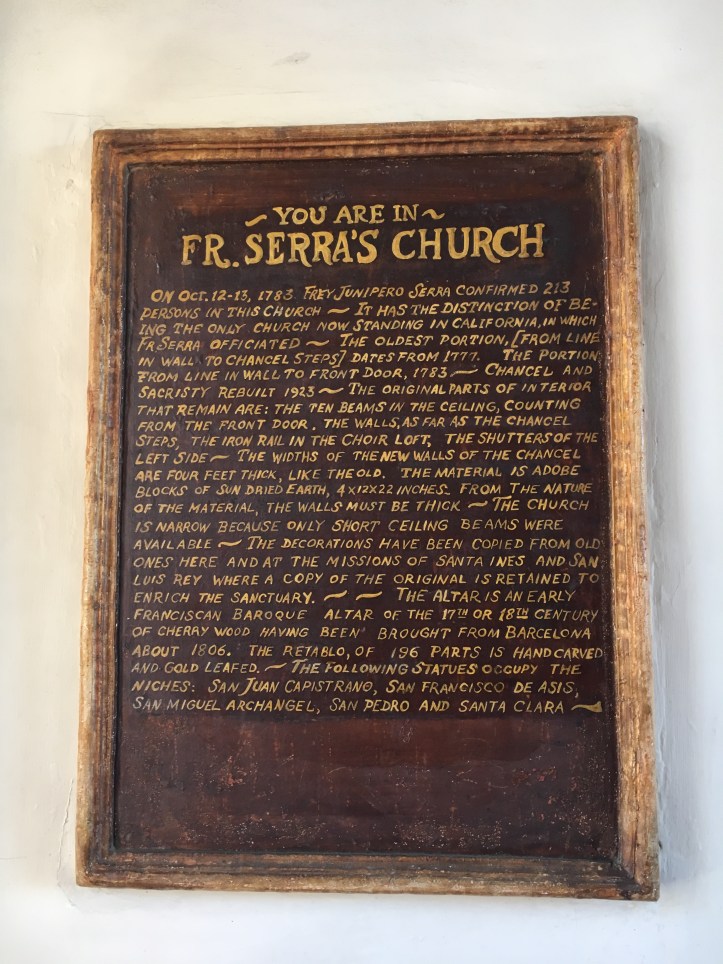 ~ YOU ARE IN ~
FR. SERRA'S CHURCH
ON OCT. 12-13, 1783 FREY JUNIPERO SERRA CONFIRMED 213
PERSONS IN THIS CHURCH ~ IT HAS THE DISTINCTION OF BE-
ING THE ONLY CHURCH NOW STANDING IN CALIFORNIA, IN WHICH
FR. SERRA OFFICIATED ~ THE OLDEST PORTION, [FROM LINE
IN WALL TO CHANCEL STEPS] DATES FROM 1777. THE PORTION,
FROM LINE IN WALL TO FRONT DOOR, 1783 ~ CHANCEL AND
SACRISTY REBUILT 1923 ~ THE ORIGINAL PARTS OF INTERIOR
THAT REMAIN ARE: THE TEN BEAMS IN THE CEILING, COUNTING
FROM THE FRONT DOOR. THE WALLS, AS FAR AS THE CHANCEL
STEPS, THE IRON RAIL IN THE CHOIR LOFT, THE SHUTTERS OF THE
LEFT SIDE ~ THE WIDTHS OF THE NEW WALLS OF THE CHANCEL
ARE FOUR FEET THICK, LIKE THE OLD. THE MATERIAL IS ADOBE
BLOCKS OF SUN DRIED EARTH, 4X12X22 INCHES. FROM THE NATURE
OF THE MATERIAL, THE WALLS MUST BE THICK ~ THE CHURCH
IS NARROW BECAUSE ONLY SHORT CEILING BEAMS WERE
AVAILABLE ~ THE DECORATIONS HAVE BEEN COPIED FROM OLD
ONES HERE AND AT THE MISSIONS OF SANTA INES AND SAN
LUIS REY WHERE A COPY OF THE ORIGINAL IS RETAINED TO
ENRICH THE SANCTUARY. ~ ~ THE ALTAR IS AN EARLY
FRANCISCAN BAROQUE ALTAR OF THE 17TH OR 18TH CENTURY
OF CHERRY WOOD HAVING BEEN BROUGHT FROM BARCELONA
ABOUT 1806. THE RETABLO, OF 196 PARTS IS HAND CARVED
AND GOLD LEAFED. ~ THE FOLLOWING STATUES OCCUPY THE
NICHES: SAN JUAN CAPISTRANO, SAN FRANCISCO DE ASIS,
SAN MIGUEL ARCHANGEL, SAN PEDRO AND SANTA CLARA ~